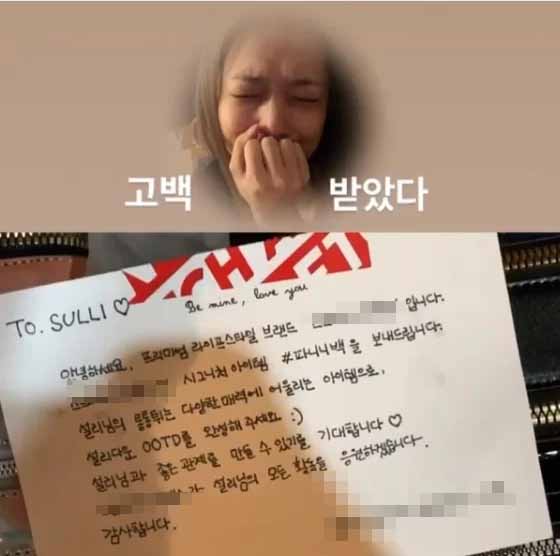 고백 받았다
Be mine, love you
TO. SULLI ♡
안녕하세요. 프리미엄 라이프스타일 브랜드 입니다.
시그니처 아이템 #파니니백을 보내드립니다.
설리님의 톡톡튀는 다양한 매력에 어울리는 아이템으로,
설리다운 OOTD를 완성해 주세요 :)
설리님과 좋은 관계를 만들 수 있기를 기대합니다 ♡
설리님의 모든 활동을 응원하겠습니다.
감사합니다.